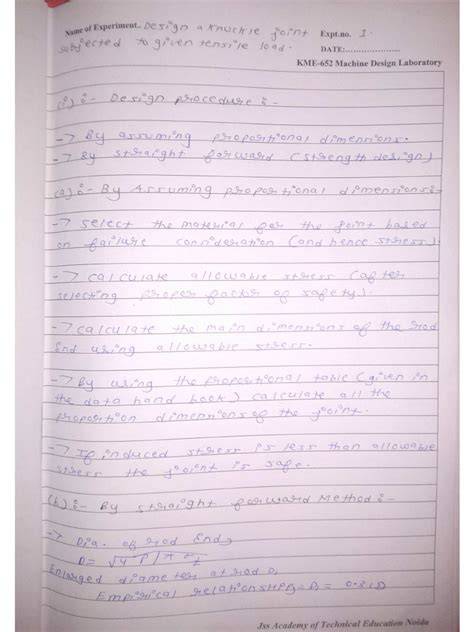 Name of Experiment.. Design a knuckle joint Expt.no. 1.
subjected to given tensile load. DATE:
KME-652 Machine Design Laboratory
(i):- Design procedure:-
-> By assuming proportional dimensions.
-> By straight forward (strength design)
(a):- By Assuming proportional dimensions:-
-> select the material for the joint based
on failure consideration (and hence stress).
-> calculate allowable stress (after
selecting proper factor of safety).
-> calculate the main dimensions of the rod
End using allowable stress.
-> By using the proportional table (given in
the data hand book) calculate all the
proportion dimensions of the joint.
-> If induced stress is less than allowable
stress the joint is safe.
(b):- By straight forward Method:-
-> Dia. of rod End,
D = √4 P / π
Enlarged diameter at rod
Empirical relationship D₁ =
Jss Academy of Technical Education Noida